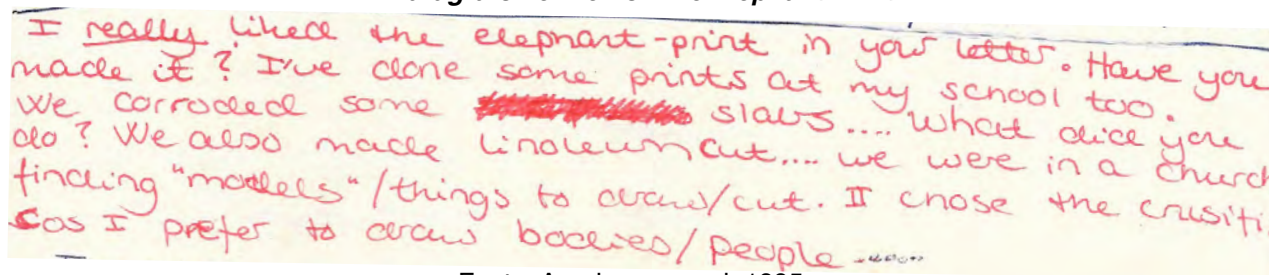 I really liked the elephant-print in your letter. Have you
made it? I've done some prints at my school too.
We corroded some slabs.... What did you
do? We also made linoleum cut.... we were in a church
finding "models"/things to draw/cut. II chose the crusifi
cos I prefer to draw bodies/people